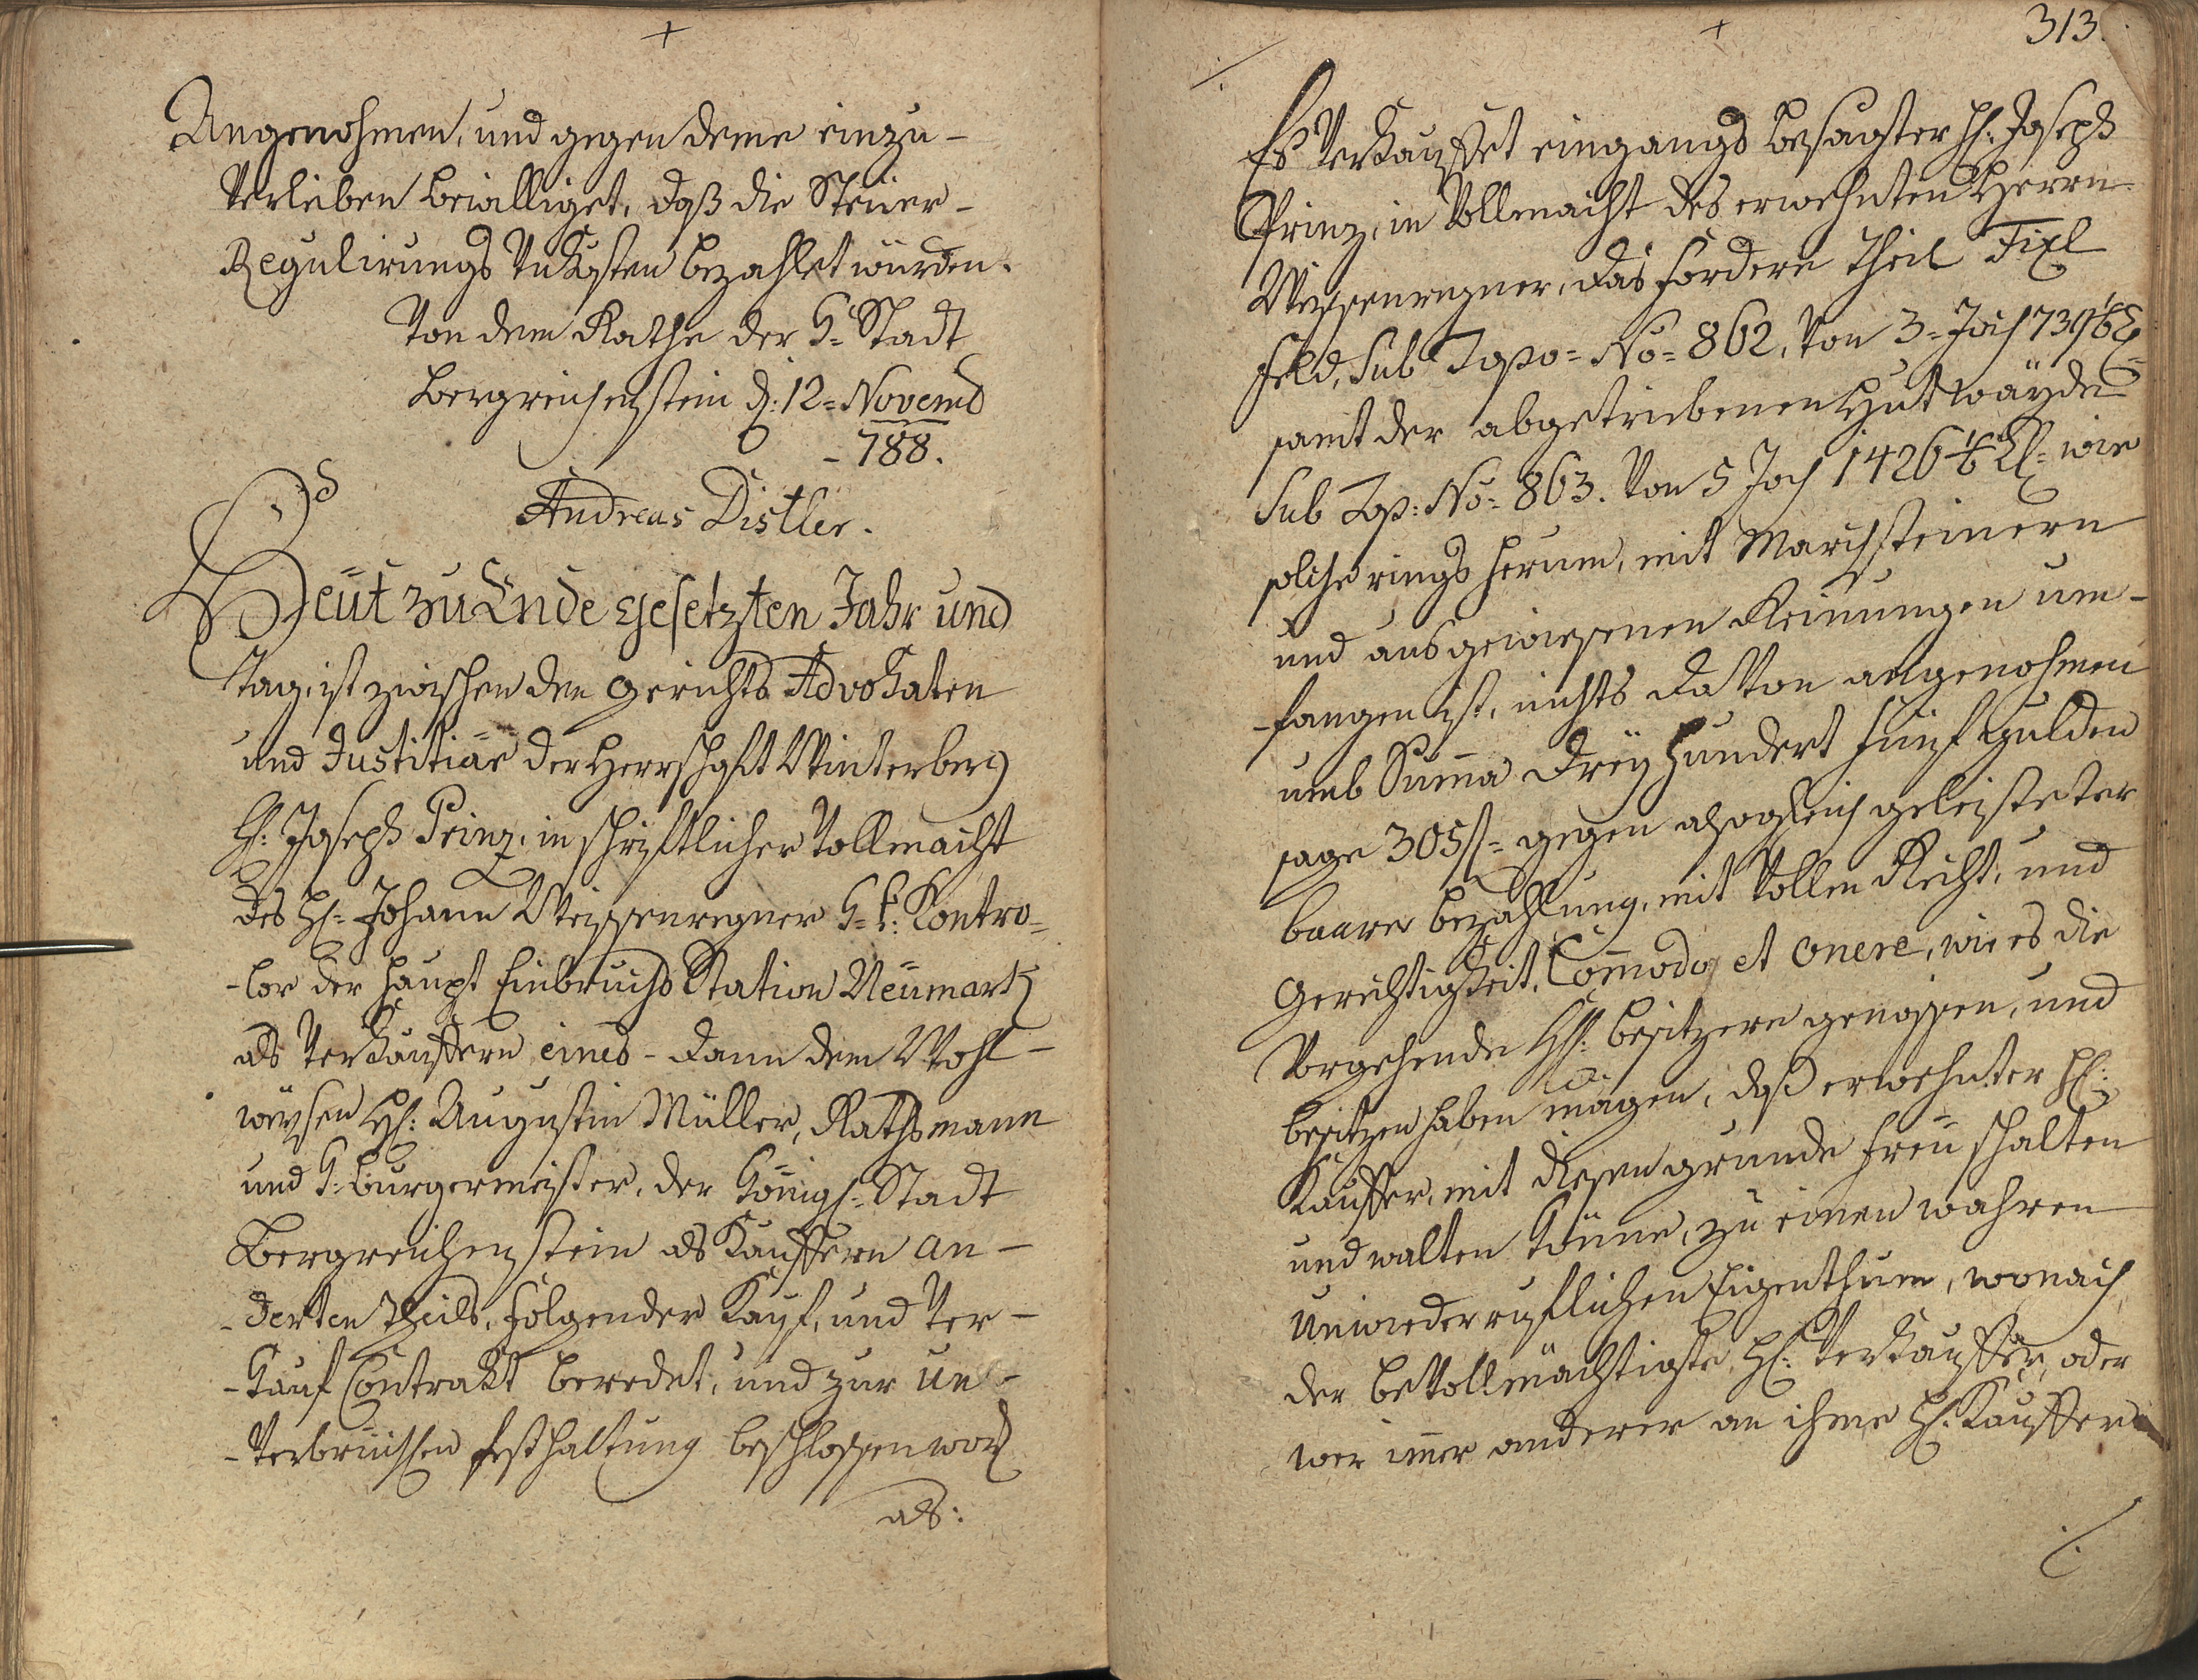 Angenohmen, und gegen deme einzu-
verleiben bewilliget, daß die Steüer-
Regulirungs Unkosten bezahlet würden.
Von dem Rathe der K: Stadt
Bergreichenstein d: 12= Novemb
- 788.
Andreas Distler.
Heüt zu Ende gesetzten Jahr und
Tag, ist zwischen den Gerichts Advokaten
und Justitiär der Herrschaft Winterberg
H: Joseph Prinz, in schriftlicher Vollmacht
des H= Johann Weissenregner K: k: Kontro=
-lor der Haupt Einbruchs Station Neümark
als Verkäuffern eines - dann dem Wohl-
weysen H: Augustin Müller, Rathsmann
und K: Burgermeister, der Königl: Stadt
Bergreichenstein als Kauffern an-
-derten Theils, folgender Kauf, und Ver-
-kauf Contrakt beredet, und zur un-
-verbrüchlichen festhaltung beschlossen word
als:
313.
Es Verkauffet eingangs besagter H: Joseph
Prinz, in Vollmacht des erwehnten Herrn
Weissenregner, das fordere Theil Fixl
Feld, Sub Topo= No= 862, Von 3= Joch 739
samt der abgetriebenen Hutwäyde
Sub Top: No= 863. Von 5 Joch 1426 wie
solche rings herum, mit Marchsteinern
und ausgewiesenen Reinungen um-
-fangen ist, nichts davon ausgenohmen
umb Suma Dreÿ hundert fünf Gulden
sage 305 f= gegen alsogleich geleisteter
baarer bezahlung, mit vollen Recht, und
Gerechtigkeit, Comodo, et onere, wie es die
Vorgehende H: besitzern genossen, und
besitzen haben mögen, daß erwehnter H:
Kauffer, mit diesen grunde freü schalten
und walten könne, zu einen wahren
unwiederruflichen Eigenthum, wonach
der bevollmächtigte H: Verkauffer, oder
wer imer anderer an ihme H: Kauffern